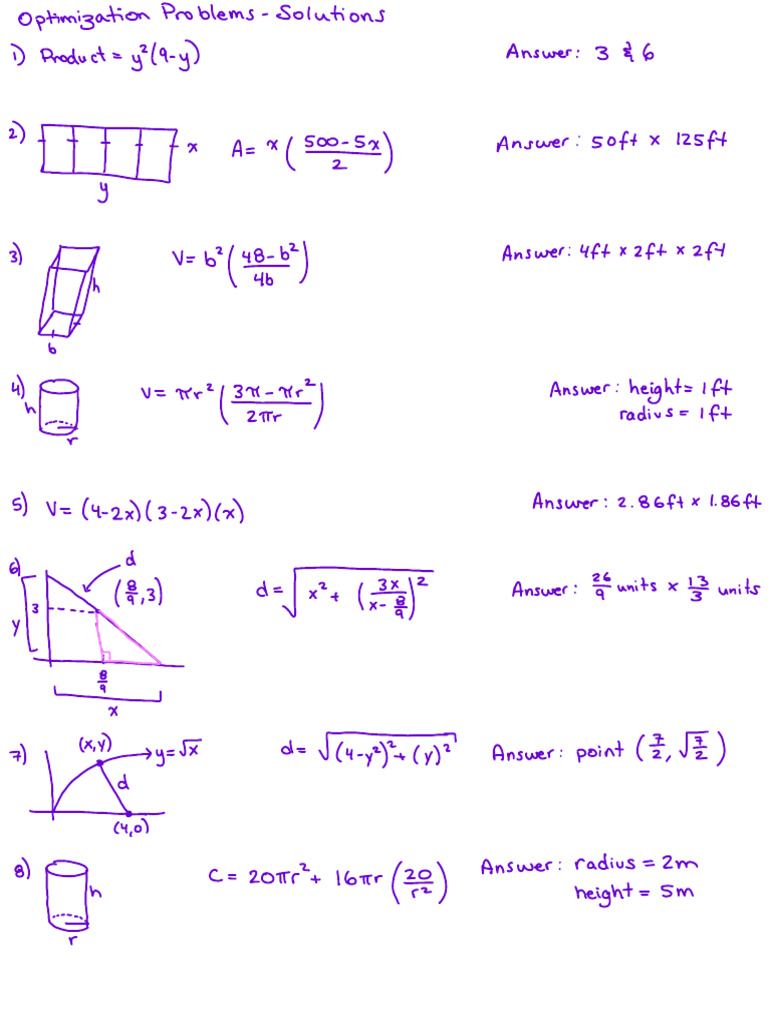 Optimization Problems - Solutions
1) Product = y²(9-y) Answer: 3 & 6
2) x y A = x((500-5x)/2) Answer: 50ft x 125ft
3) h b V = b²((48-b²)/4b) Answer: 4ft x 2ft x 2ft
4) h r V = πr²((3π-πr²)/2πr) Answer: height = 1ft
radius = 1ft
5) V = (4-2x)(3-2x)(x) Answer: 2.86ft x 1.86ft
6) d (8/9, 3) 3 y 8/9 x d = √(x² + (3x/(x-8/9))²) Answer: 26/9 units x 13/3 units
7) (x,y) y=√x d (4,0) d = √((4-y²)²+(y)²) Answer: point (7/2, √(7/2))
8) h r C = 20πr² + 16πr(20/r²) Answer: radius = 2m
height = 5m